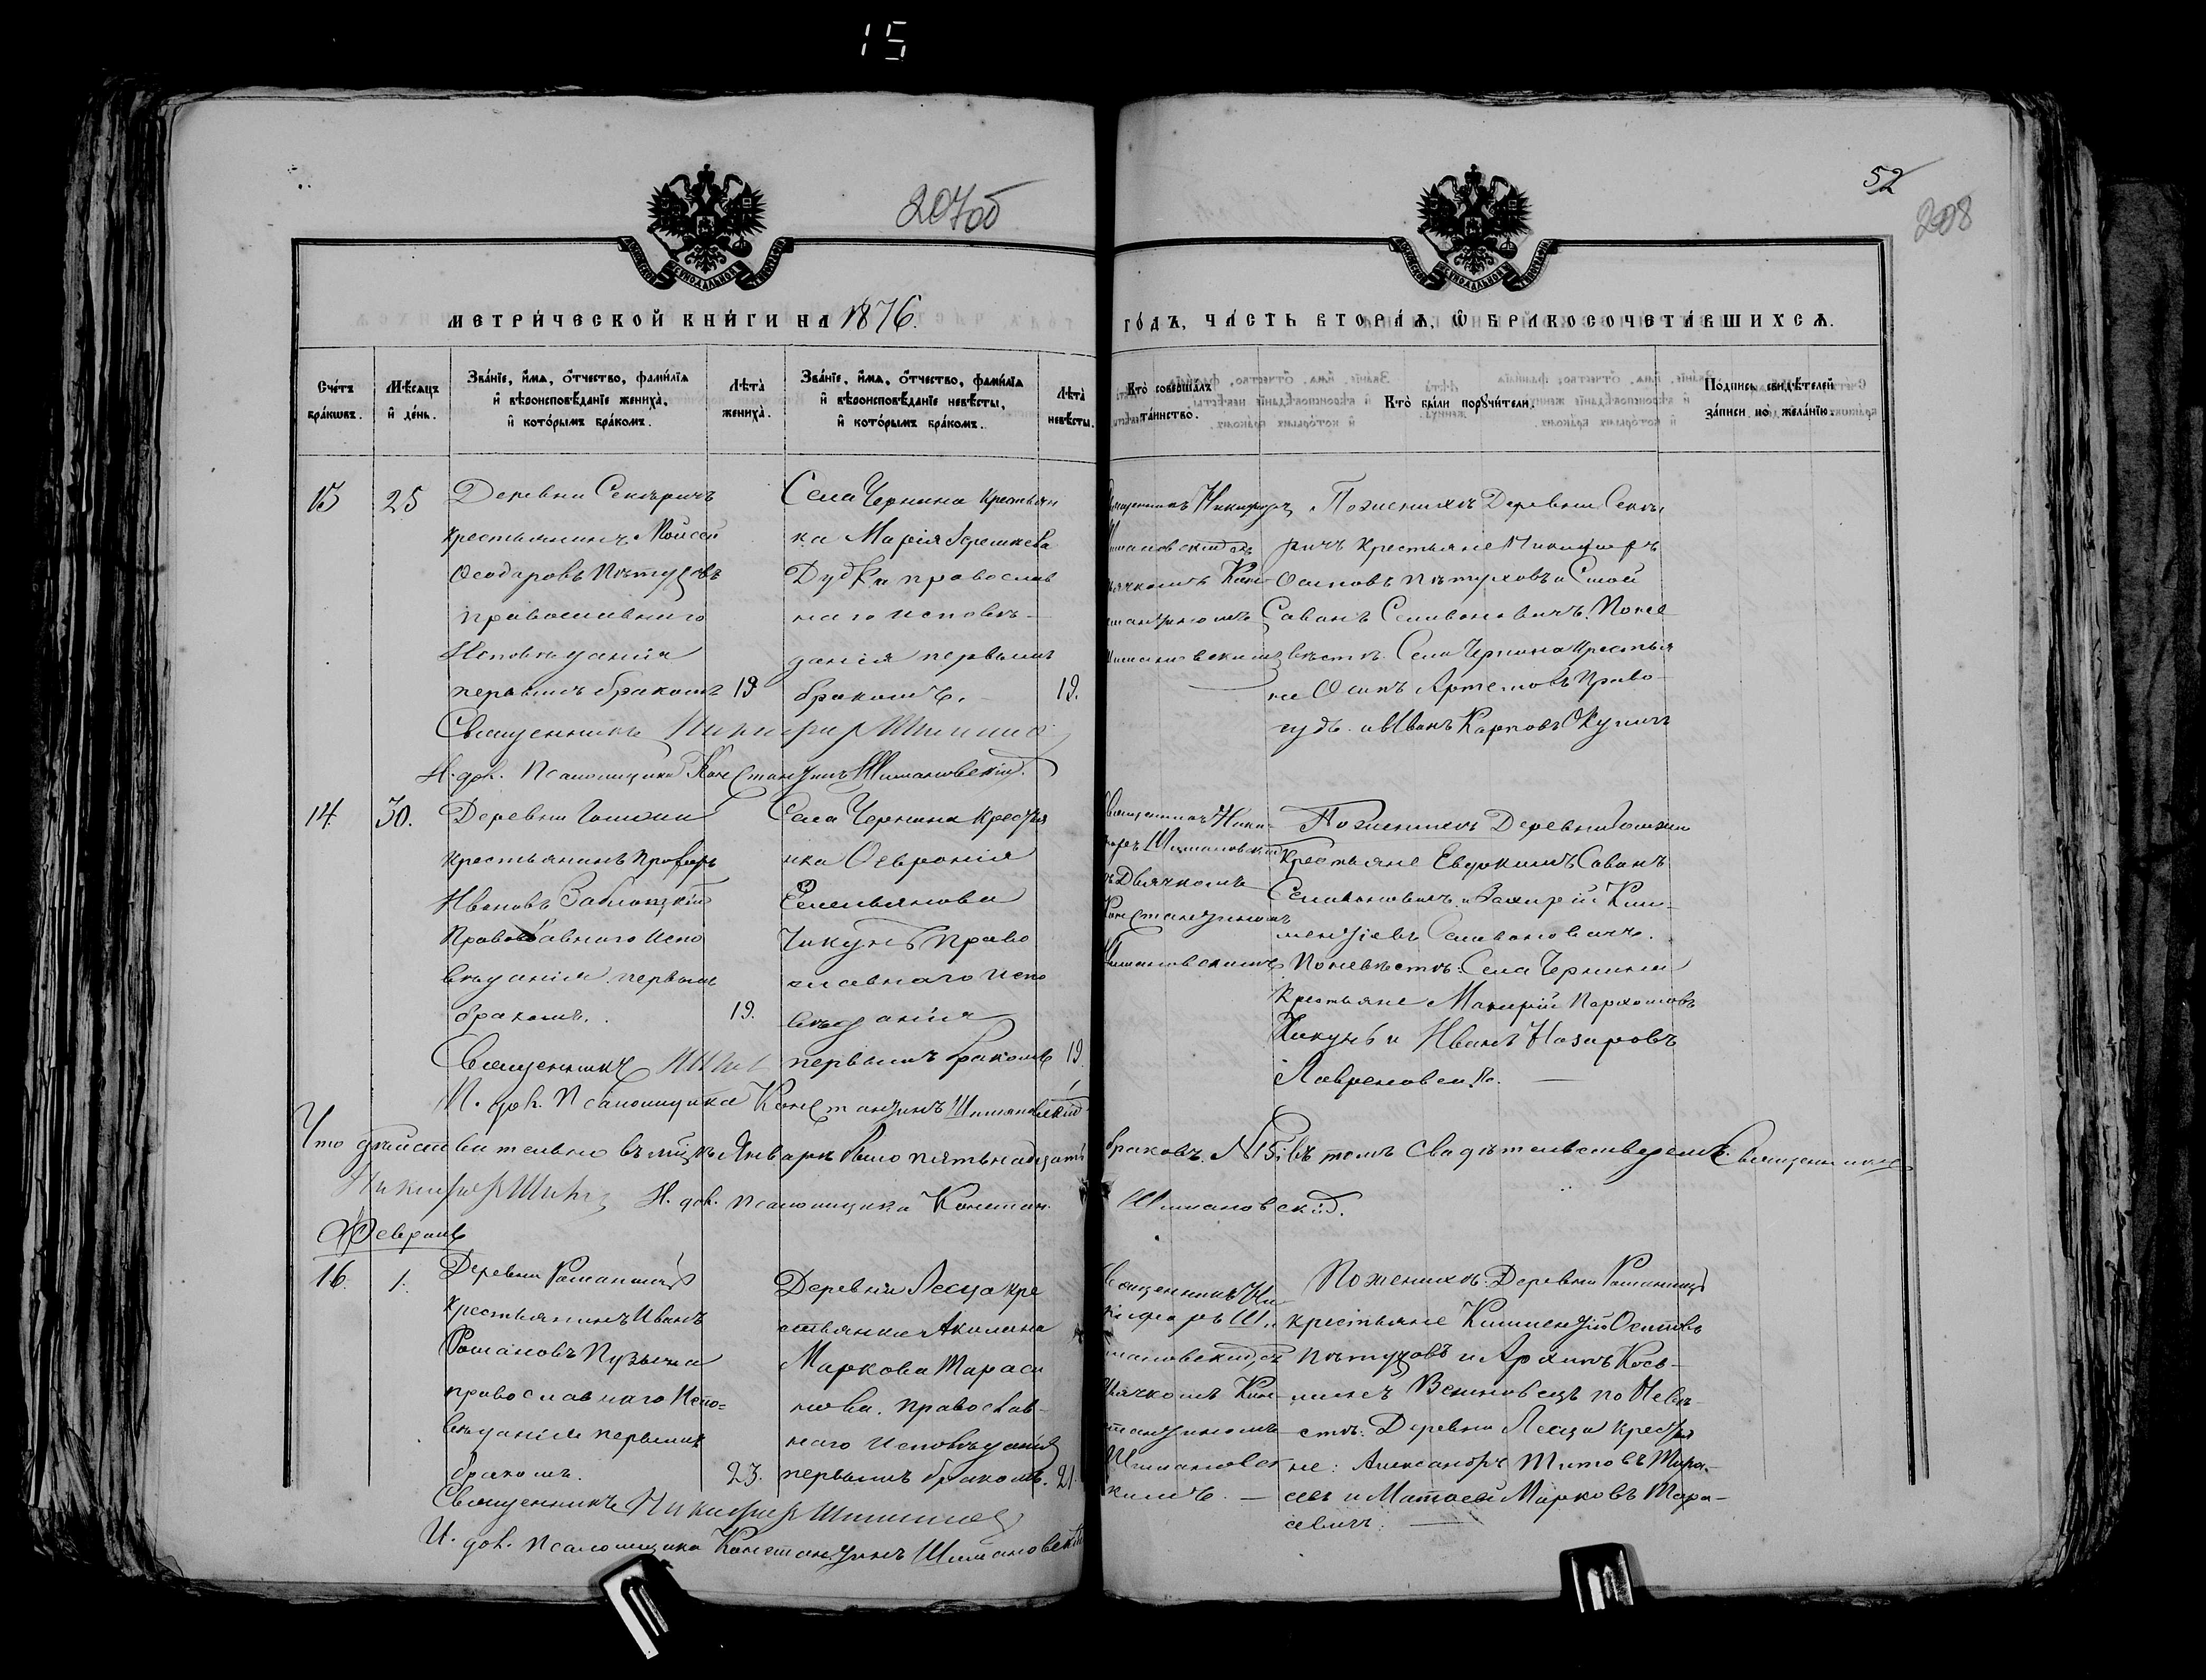 15
207об
52
208
МЕТРИ́ЧЕСКОЙ КНИ́ГИ НА 1876.
ГО́ДЪ, ЧА́СТЬ ВТОРА́Ѧ, Ѽ БРАКОСОЧЕТА́ВШИХСѦ.
Сче́тъ бра́кωвъ.
Мѣ́сѧцъ и҆ де́нь.
Зва́нїе, и҆́мѧ, ѻ҆́тчество, фами́лїѧ и҆ вѣроисповѣ́данїе жениха̀, и҆ кото́рымъ бра́комъ.
Лѣта̀ жениха̀.
Зва́нїе, и҆́мѧ, ѻ҆́тчество, фами́лїѧ и҆ вѣроисповѣ́данїе невѣ́сты, и҆ кото́рымъ бра́комъ.
Лѣта̀ невѣ́сты.
Кто̀ соверша́лъ та́инство.
Кто̀ бы́ли порꙋчи́тели.
По́дпись свидѣ́телей за́писи по жела́нїю.
25
Деревни Сехъричъ
крестьянинъ Мойсей
Ѳеодоровъ Пѣтуховъ
православнаго
Исповѣданія
первымъ бракомъ 19
Села Чернина крестьян
ка Марія
Дудка православ
наго исповѣ-
данія первымъ
бракомъ. 19.
Священникъ Никифоръ
Шимановскій съ
дьячкомъ Кон-
стантиномъ
Шимановскимъ
По женихѣ Деревни Сехъ
ричъ крестьяне Никифоръ
Осиповъ Пѣтуховъ и
Саванъ Селивоновичъ. По не
вѣстѣ. Села Чернина крестья
не Осипъ Артемовъ Право
гудъ. и Иванъ Карповъ Окуничъ
Священникъ Никифоръ
И. дол. Псаломщика Константинъ Шимановскій.
14. 30.
Деревни
крестьянинъ
Ивановъ Заблоцкій
Православнаго испо
вѣданія первымъ
бракомъ. 19.
Села Чернина крестья
нка Ѳевронія
Емельянова
Чикунъ право
славнаго испо
вѣданія
первымъ бракомъ 19.
Священникъ Ники-
форъ Шимановскій
съ Дьячкомъ
Константиномъ
Шимановскимъ
По женихѣ Деревни
Крестьяне Евдокимъ Саванъ
Селивоновичъ. и Захарій Кли-
ментіевъ Селивоновичъ.
По невѣстѣ: Села Чернина
Крестьяне Макарій Пархомовъ
Чикунъ и Иванъ Назаровъ
Священникъ
И. дол. Псаломщика Константинъ Шимановскій
Что дѣйствительно въ мцѣ Январѣ было пятьнадцать
браковъ. №15; въ томъ свидѣтельствуемъ. Священникъ
Никифоръ И. дол. псаломщика Констан.
Шимановскій.
Февраль
16. 1.
Деревни
Крестьянинъ Иванъ
Романовъ Пузычка
православнаго Испо=
вѣданія первымъ
бракомъ. 23.
Деревни Лесца кре
стьянка Акилина
Маркова Тараси
наго исповѣданія
первымъ бракомъ. 21.
Священникъ Ни-
кифоръ Ши
мановскій съ
дьячкомъ Кон-
стантиномъ
Шимановс
кимъ. —
По женихѣ. Деревни
крестьяне Климентій Осиповъ
Пѣтуховъ и Архипъ Кось-
по Невѣ-
стѣ: Деревни Лесца крестья
не: Александръ Титовъ Тара-
севъ и Матѳей Марковъ Тара-
севичъ. —
Священникъ Никифоръ
И. дол. псаломщика Константинъ Шимановскій